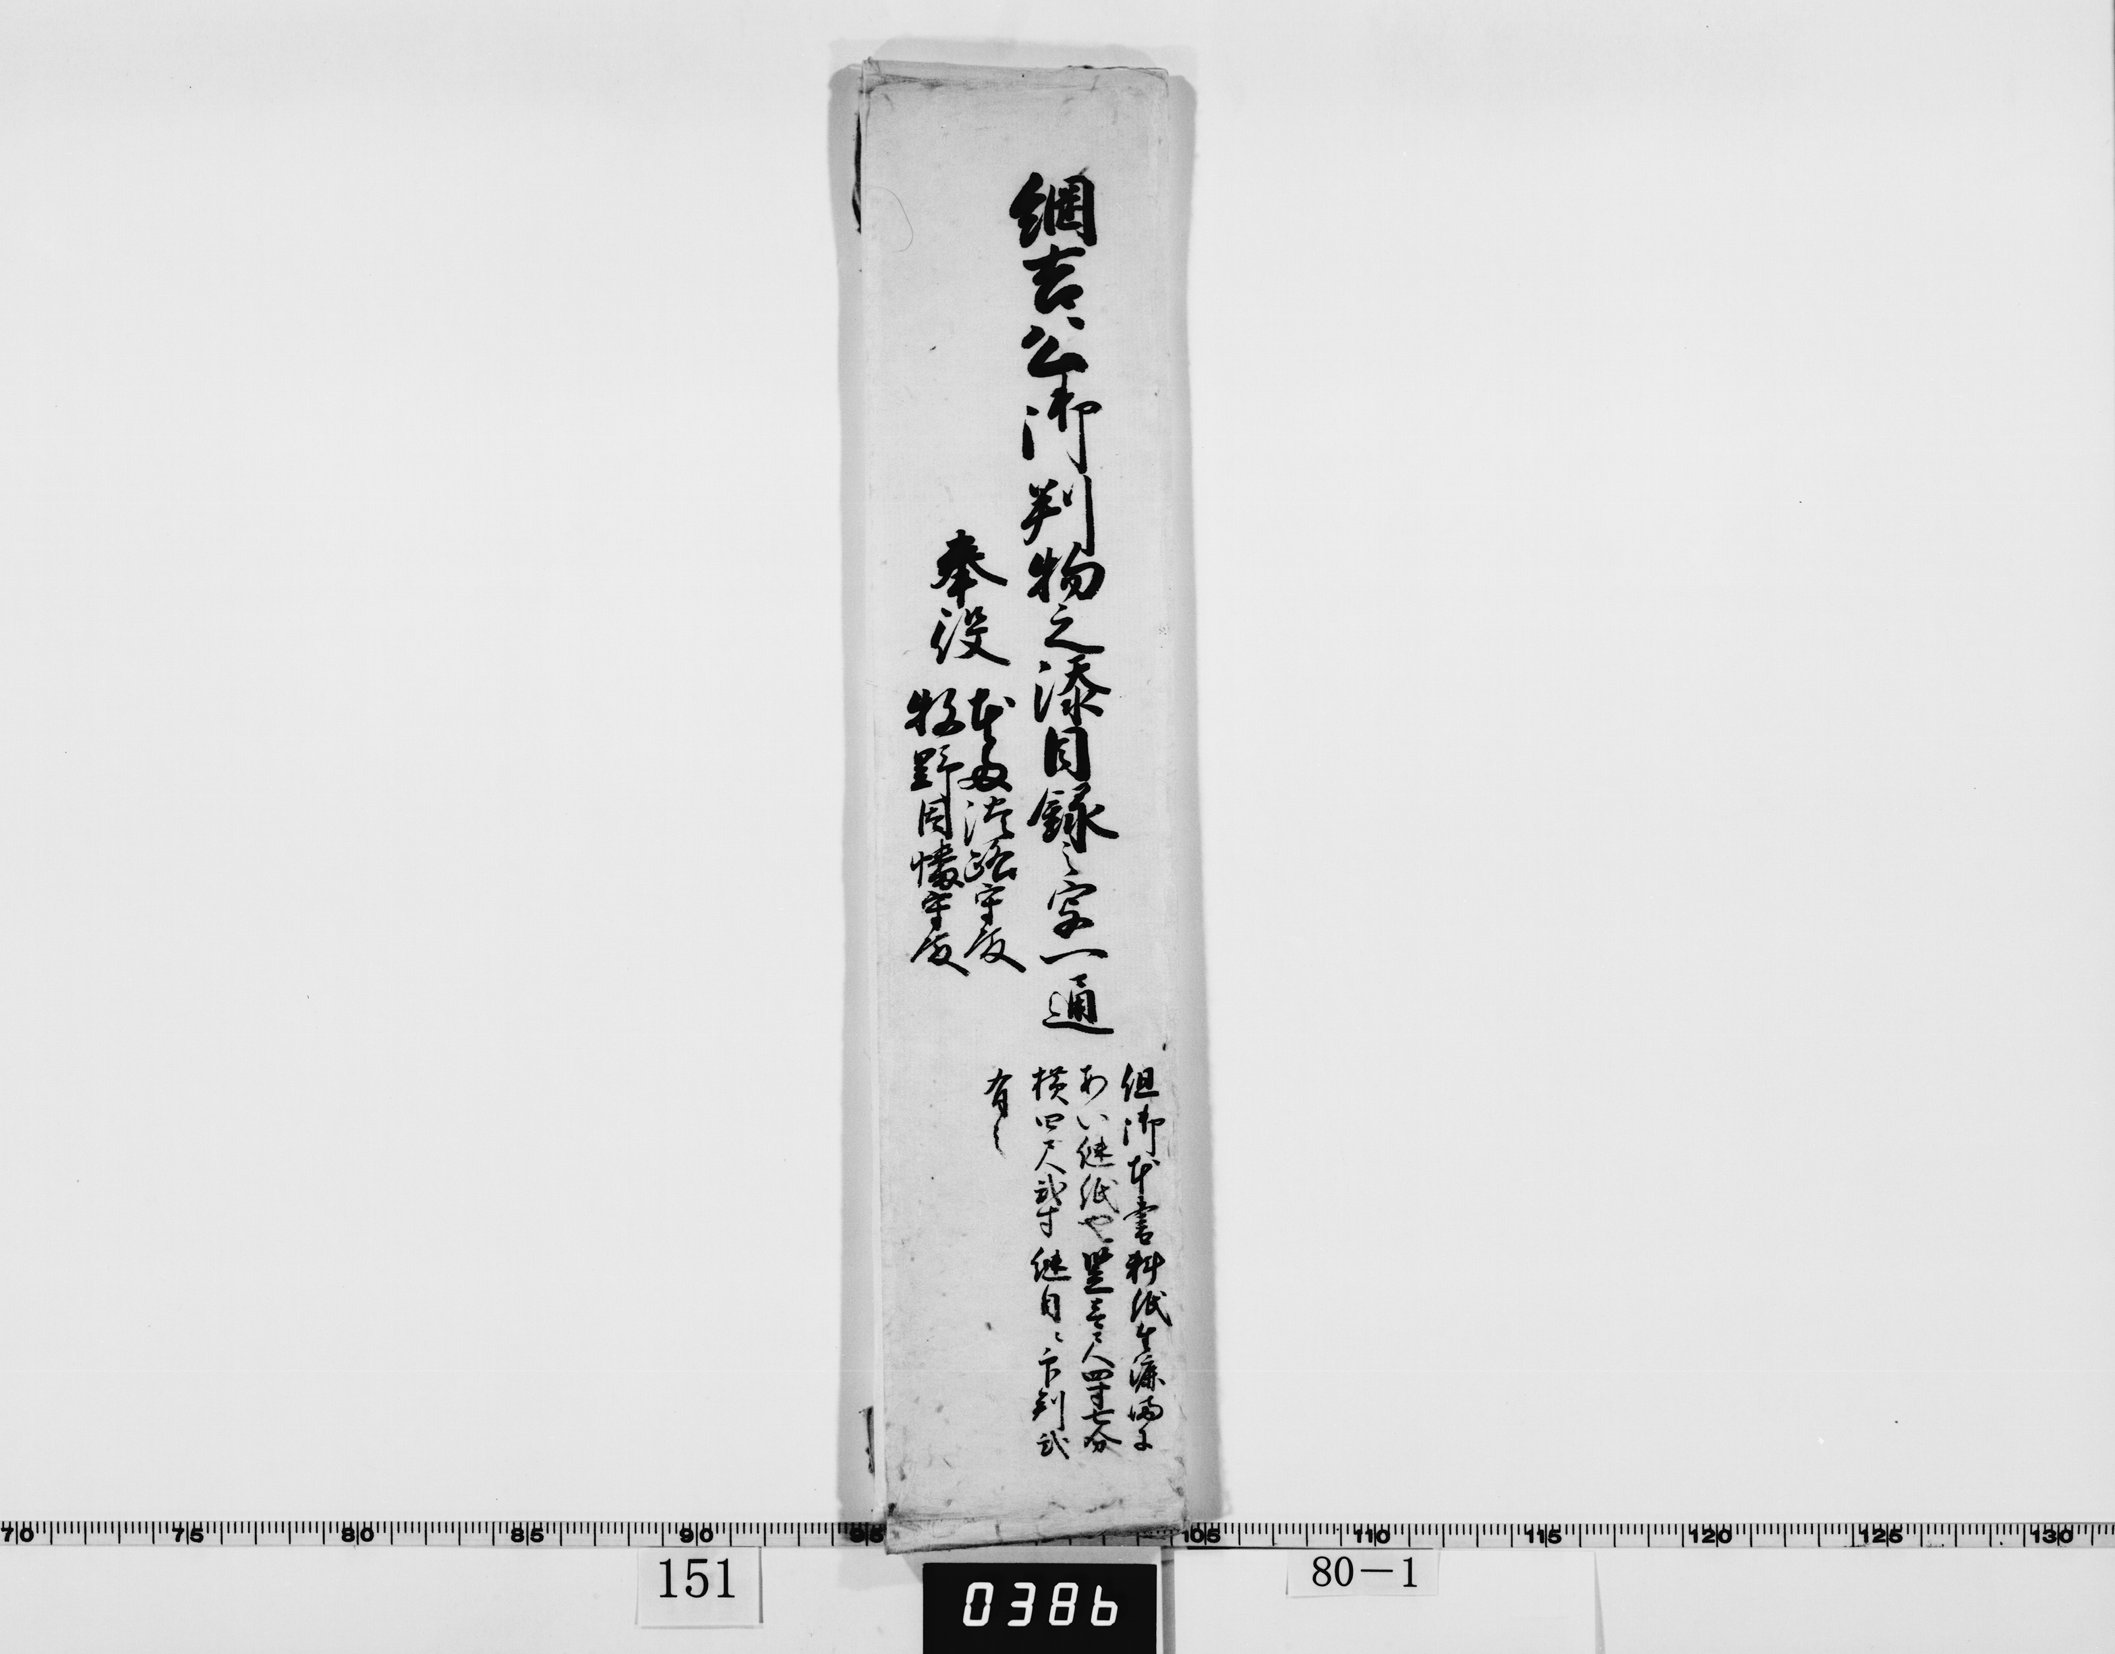 綱吉公御判物之添目録之写一通
奉役
本多淡路守殿
牧野因幡守殿
但御本書料紙生漉間に
あい継紙也竪壱尺四寸七分
横四尺弐寸継目ニ印判弐
有之
70 75 80 85 90 95 105 110 115 120 125 130
151
0386
80-1